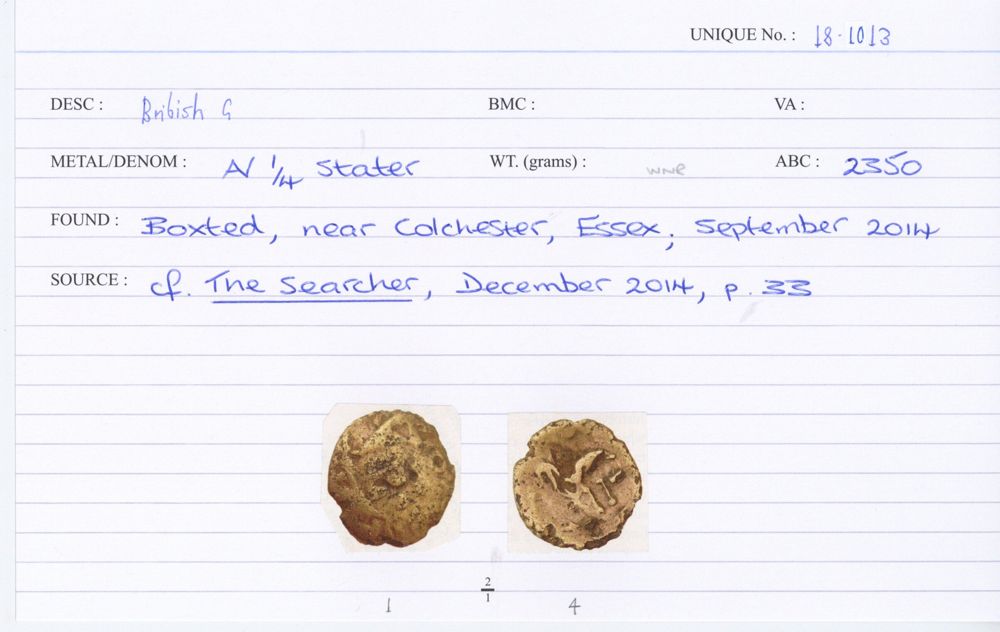 UNIQUE No. : 18-1013
DESC : British G BMC : VA :
METAL/DENOM : AV 1/4 Stater WT. (grams) : WNR ABC : 2350
FOUND : Boxted, near Colchester, Essex; September 2014
SOURCE : cf. The Searcher, December 2014, p. 33
2
1
1 4